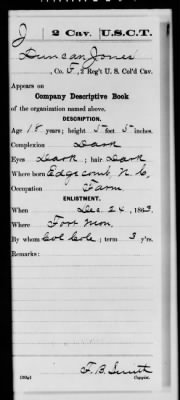 J 2 Cav. U.S.C.T.
Duncan Jones
, Co. F, 2 Reg't U. S. Col'd Cav.
Appears on
Company Descriptive Book
of the organization named above.
DESCRIPTION.
Age 18 years; height 5 feet 5 inches.
Complexion Dark
Eyes Dark; hair Dark
Where born Edgecomb, N. C.
Occupation Farm
ENLISTMENT.
When Dec. 24, 1863.
Where Fort Mon.
By whom Col Cole; term 3 y'rs.
Remarks:
F. B. Smith
Copyist.